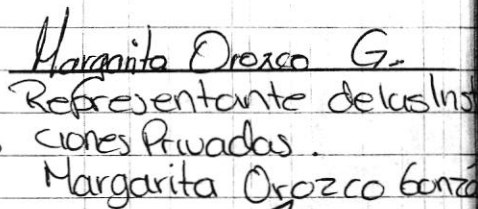 Margarita Orozco G.
Representante de las Ins
ciones Privadas.
Margarita Orozco Gonzá